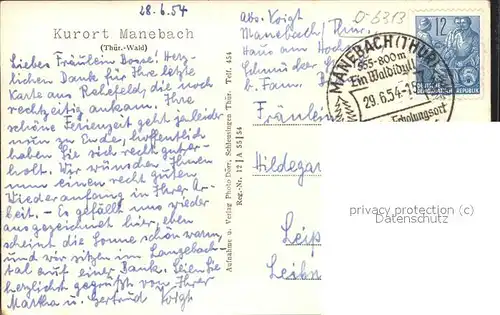 28.6.54
Kurort Manebach
(Thür.-Wald)
Liebes Fräulein Bosse! Herz-
lichen Dank für Ihre letzte
Karte aus Rehefeld, die noch
rechtzeitig ankam. Ihre
schöne Ferienzeit geht ja leider
nun zu Ende, hoffentlich
haben Sie sich recht guter-
holt. Wir wünschen Ihnen
nun einen recht guten
Wiederanfang in Ihrer Ar-
beit. - Es gefällt uns wieder
ausgezeichnet hier, eben
scheint die Sonne schön warm,
und wir sitzen im Langebach-
tal auf einer Bank. Seien Sie
herzlichst gegrüßt von Ihrer
Martha u. Gertrud Voigt.
Aufnahme u. Verlag Photo-Dörr, Schleusingen Thür. Telf. 454
Reg.-Nr. 12 | A 55/DE |
Abs. Voigt
Manebach/Thür.,
Haus am
b/ Fam.
D-6313
12
DEUTSCHE POST
MANEBACH (THÜR)
555-800m
Ein Waldidyll
29.6.54-15
Erholungsort
Fräulein
Hildegar
Leip
privacy protection (c)
Datenschutz